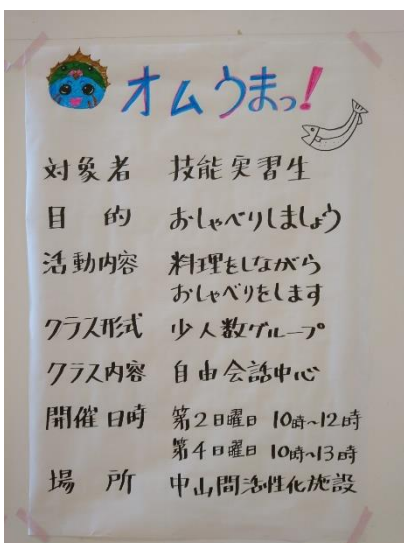 オムうまっ!
対象者 技能実習生
目的 おしゃべりしましょう
活動内容 料理をしながら
おしゃべりをします
クラス形式 少人数グループ
クラス内容 自由会話中心
開催日時 第2日曜日 10時~12時
第4日曜日 10時~13時
場所 中山間活性化施設